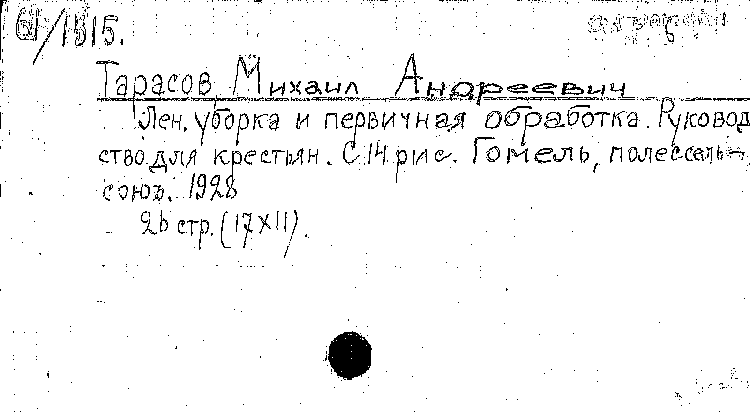 /1815.
Тарасов, Михаил Андреевич
Лен. уборка и первичная обработка. Руковод
ство для крестьян. С 14 рис. Гомель, полессель-
союз. 1928
26 стр. (17×11).